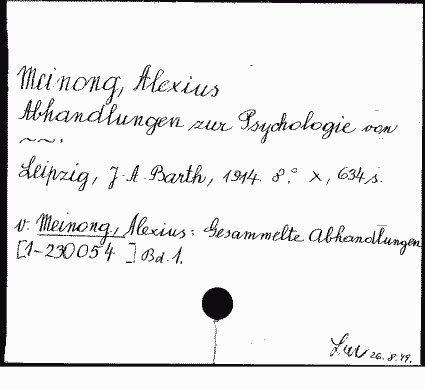 Meinong, Alexius
Abhandlungen zur Psychologie von
~~.
Leipzig, J. A. Barth, 1914. 8° X, 634 s.
v. Meinong, Alexius: Gesammelte Abhandlungen
[1-230054 ] Bd. 1.
26.8.49.